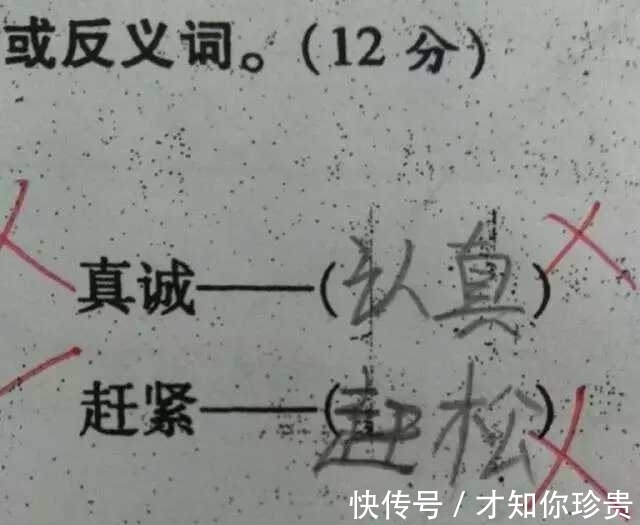 或反义词。(12 分)
真诚——(认真)
赶紧——(赶松)
快传号 / 才知你珍贵